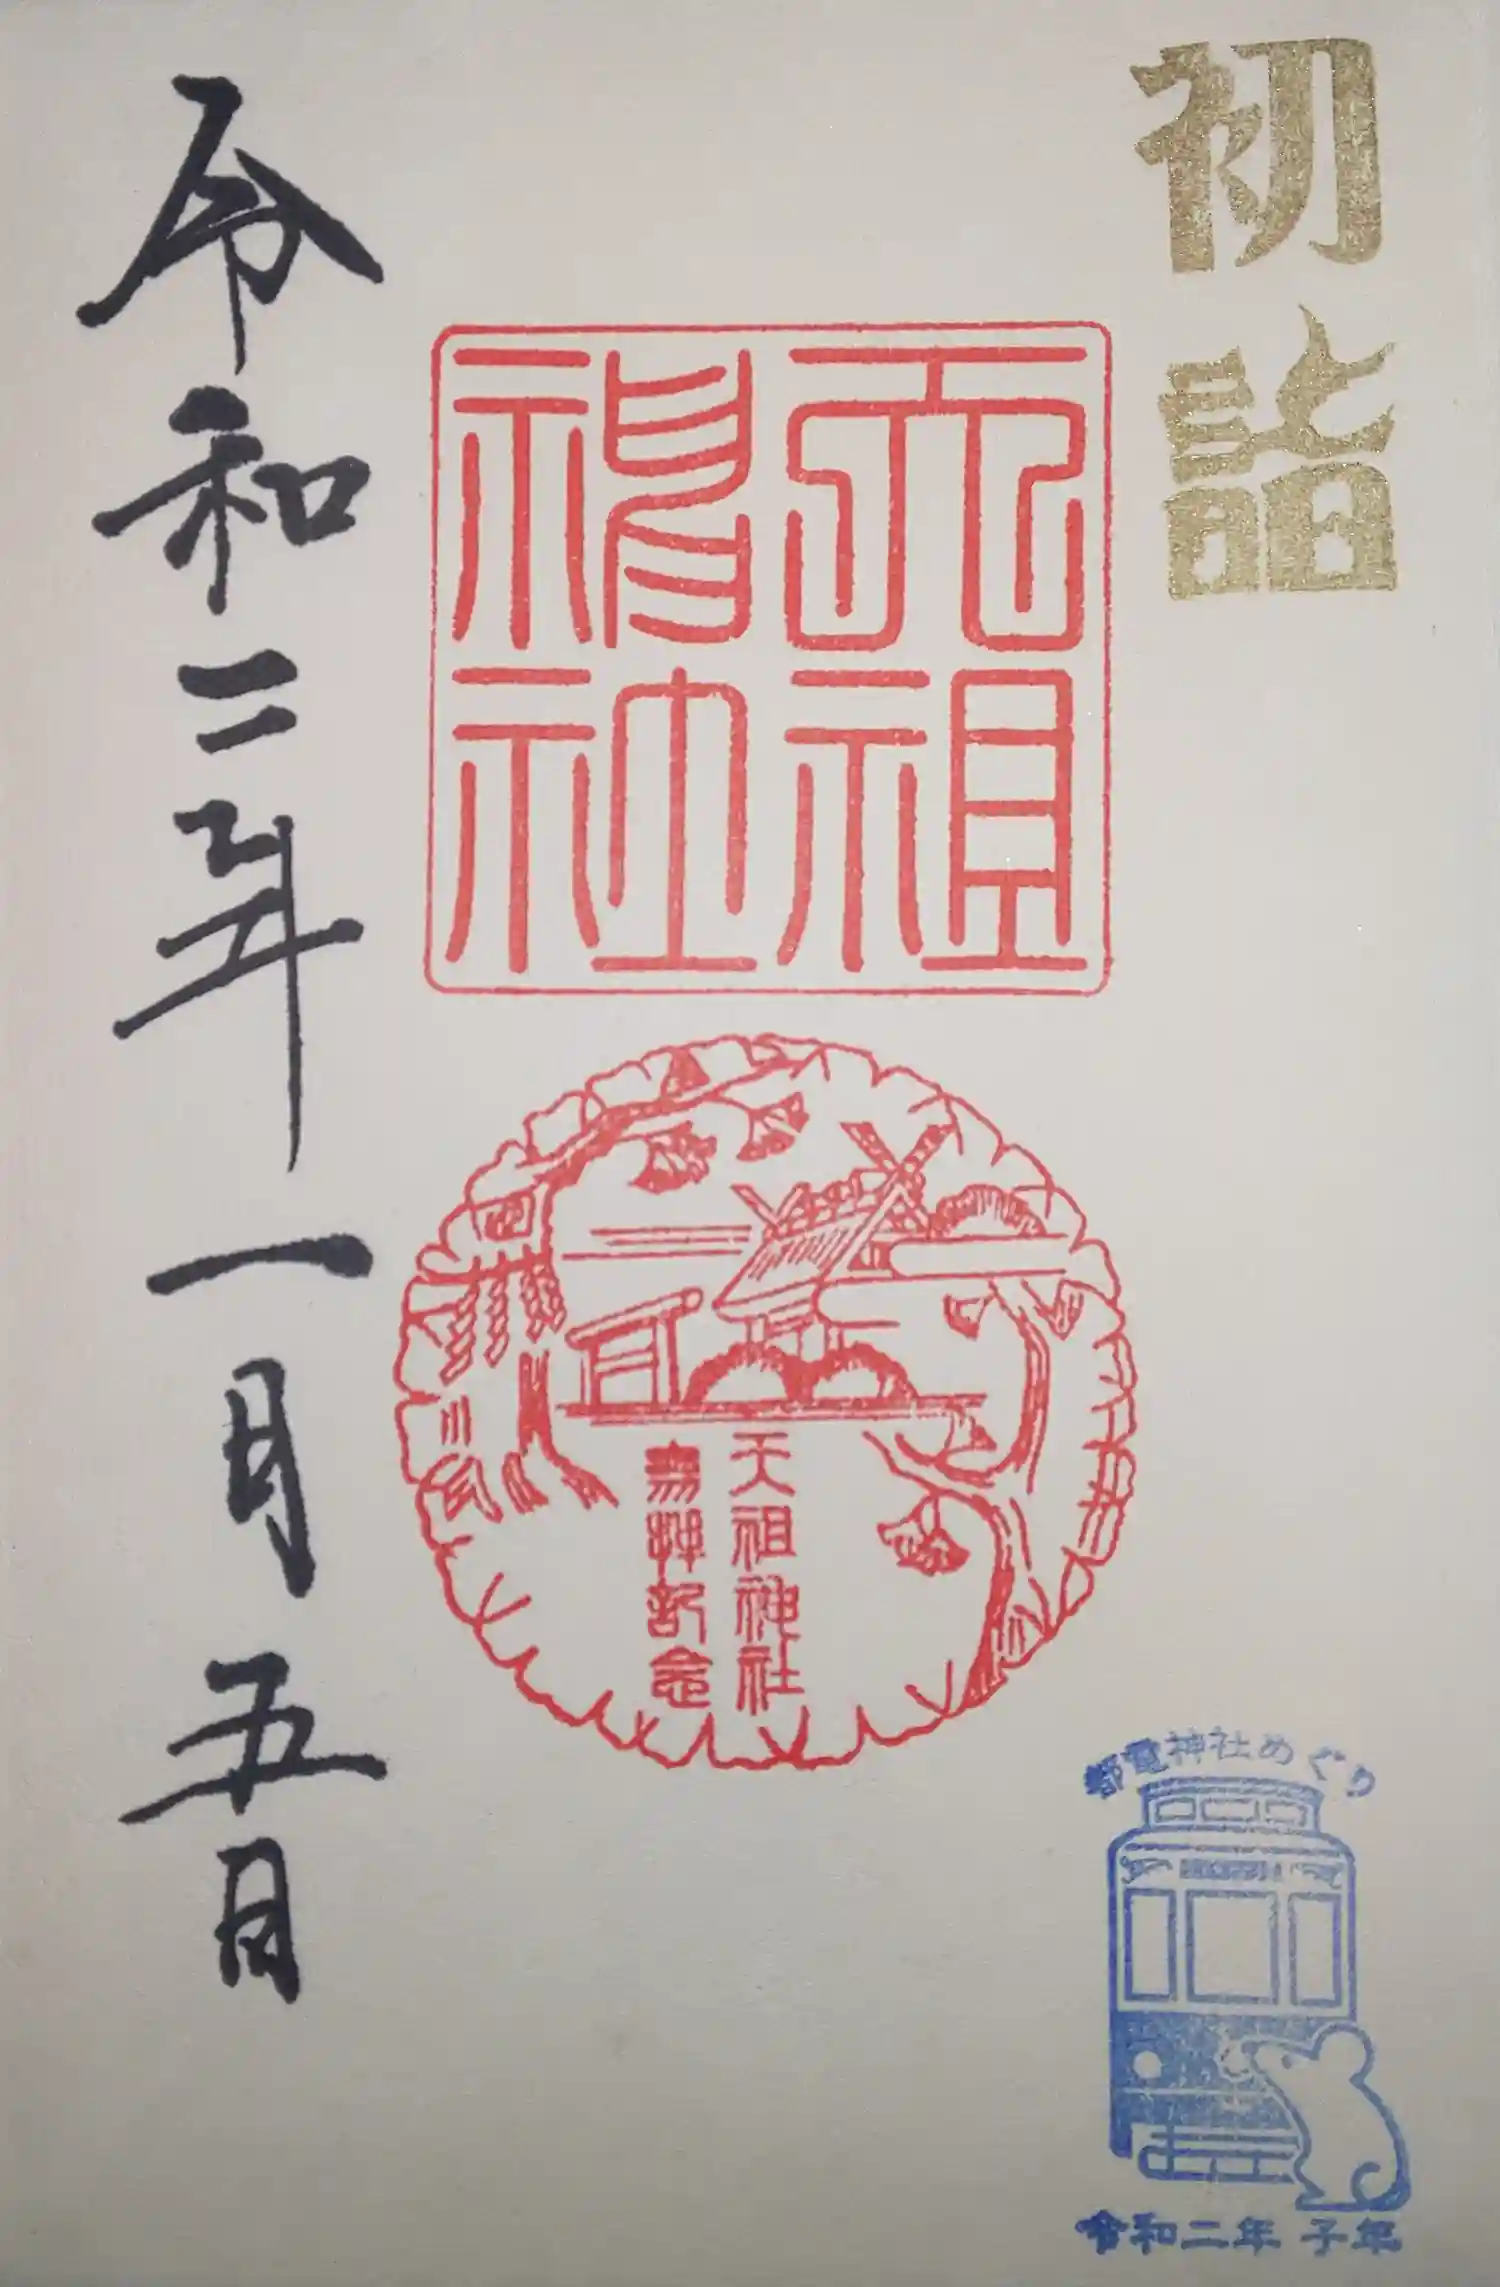 初詣
天祖
神社
天祖神社
参拝記念
都電神社めぐり
令和二年 子年
令和二年一月五日